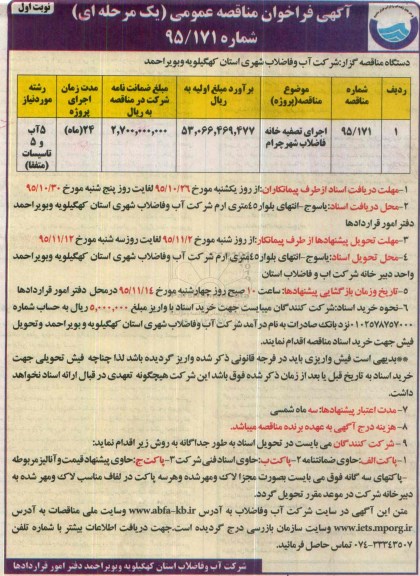 آگهی فراخوان مناقصه عمومی (یک مرحله ای)
نوبت اول
شماره ۹۵/۱۷۱
دستگاه مناقصه گزار: شرکت آب وفاضلاب شهری استان کهگیلویه وبویراحمد
ردیف
شماره مناقصه
موضوع مناقصه(پروژه)
برآورد مبلغ اولیه به ریال
مبلغ ضمانت نامه شرکت در مناقصه به ریال
مدت زمان اجرای پروژه
رشته موردنیاز
۱
۹۵/۱۷۱
اجرای تصفیه خانه فاضلاب شهرچرام
۵۳,۰۶۶,۴۶۹,۴۷۷
۲,۷۰۰,۰۰۰,۰۰۰
۲۴(ماه)
۵آب و ۵ تاسیسات (متفقا)
۱-مهلت دریافت اسناد ازطرف پیمانکاران:از روز یکشنبه مورخ ۹۵/۱۰/۲۶ لغایت روز پنج شنبه مورخ ۹۵/۱۰/۳۰
۲-محل دریافت اسناد:یاسوج-انتهای بلوار۴۵متری ارم شرکت آب وفاضلاب شهری استان کهگیلویه وبویراحمد
دفتر امور قراردادها
۳-مهلت تحویل پیشنهادها از طرف پیمانکار:از روز شنبه مورخ ۹۵/۱۱/۲ لغایت روزسه شنبه مورخ ۹۵/۱۱/۱۲
۴-محل تحویل اسناد:یاسوج-انتهای بلوار۴۵متری ارم شرکت آب وفاضلاب شهری استان کهگیلویه وبویراحمد
واحد دبیر خانه شرکت اب و فاضلاب استان
۵-تاریخ وزمان بازگشایی پیشنهادها: ساعت ۱۰ صبح روز چهارشنبه مورخ ۹۵/۱۱/۱۴ درمحل دفتر امور قراردادها
۶-نحوه خرید اسناد:شرکت کنندگان میبایست جهت خرید اسناد با واریز مبلغ ۵,۰۰۰,۰۰۰ ریال به حساب شماره
۰۱۰۲۵۷۸۷۵۷۰۰۰ نزد بانک صادرات به نام درآمد شرکت آب وفاضلاب شهری استان کهگیلویه و بویراحمد و تحویل
فیش جهت خرید اسناد مناقصه اقدام نمایند.
**بدیهی است فیش واریزی باید در فرجه قانونی ذکر شده واریز گردیده باشد لذا چناچه فیش تحویلی جهت
خرید اسناد به تاریخ قبل یا بعد از زمان ذکر شده فوق باشد این شرکت هیچگونه تعهدی در قبال ارائه اسناد نخواهد
داشت.
۷-مدت اعتبار پیشنهادها: سه ماه شمسی
۸- هزینه درج آگهی به عهده برنده مناقصه میباشد.
۹- شرکت کنندگان می بایست در تحویل اسناد به طور جداگانه به روش زیر اقدام نماید:
۱-پاکت الف:حاوی ضمانتنامه ۲-پاکت ب:حاوی اسناد فنی شرکت ۳-پاکت ج:حاوی پیشنهاد قیمت و آنالیز مربوطه
-پاکتهای سه گانه فوق می بایست بصورت مجزا لاک ومهرشده وهرسه پاکت در لفاف مناسب لاک ومهر شده به
دبیرخانه شرکت در موعد مقرر تحویل گردد.
متن این آگهی در سایت شرکت آب وفاضلاب به آدرس www.abfa-kb.ir وسایت ملی مناقصات به آدرس
www.iets.mporg.ir وسایت سازمان بازرسی درج گردیده است.جهت دریافت اطلاعات بیشتر با شماره تلفن
۰۷۴-۳۳۳۴۳۵۰۷ تماس حاصل فرمائید.
شرکت آب وفاضلاب استان کهگیلویه وبویراحمد دفتر امور قراردادها